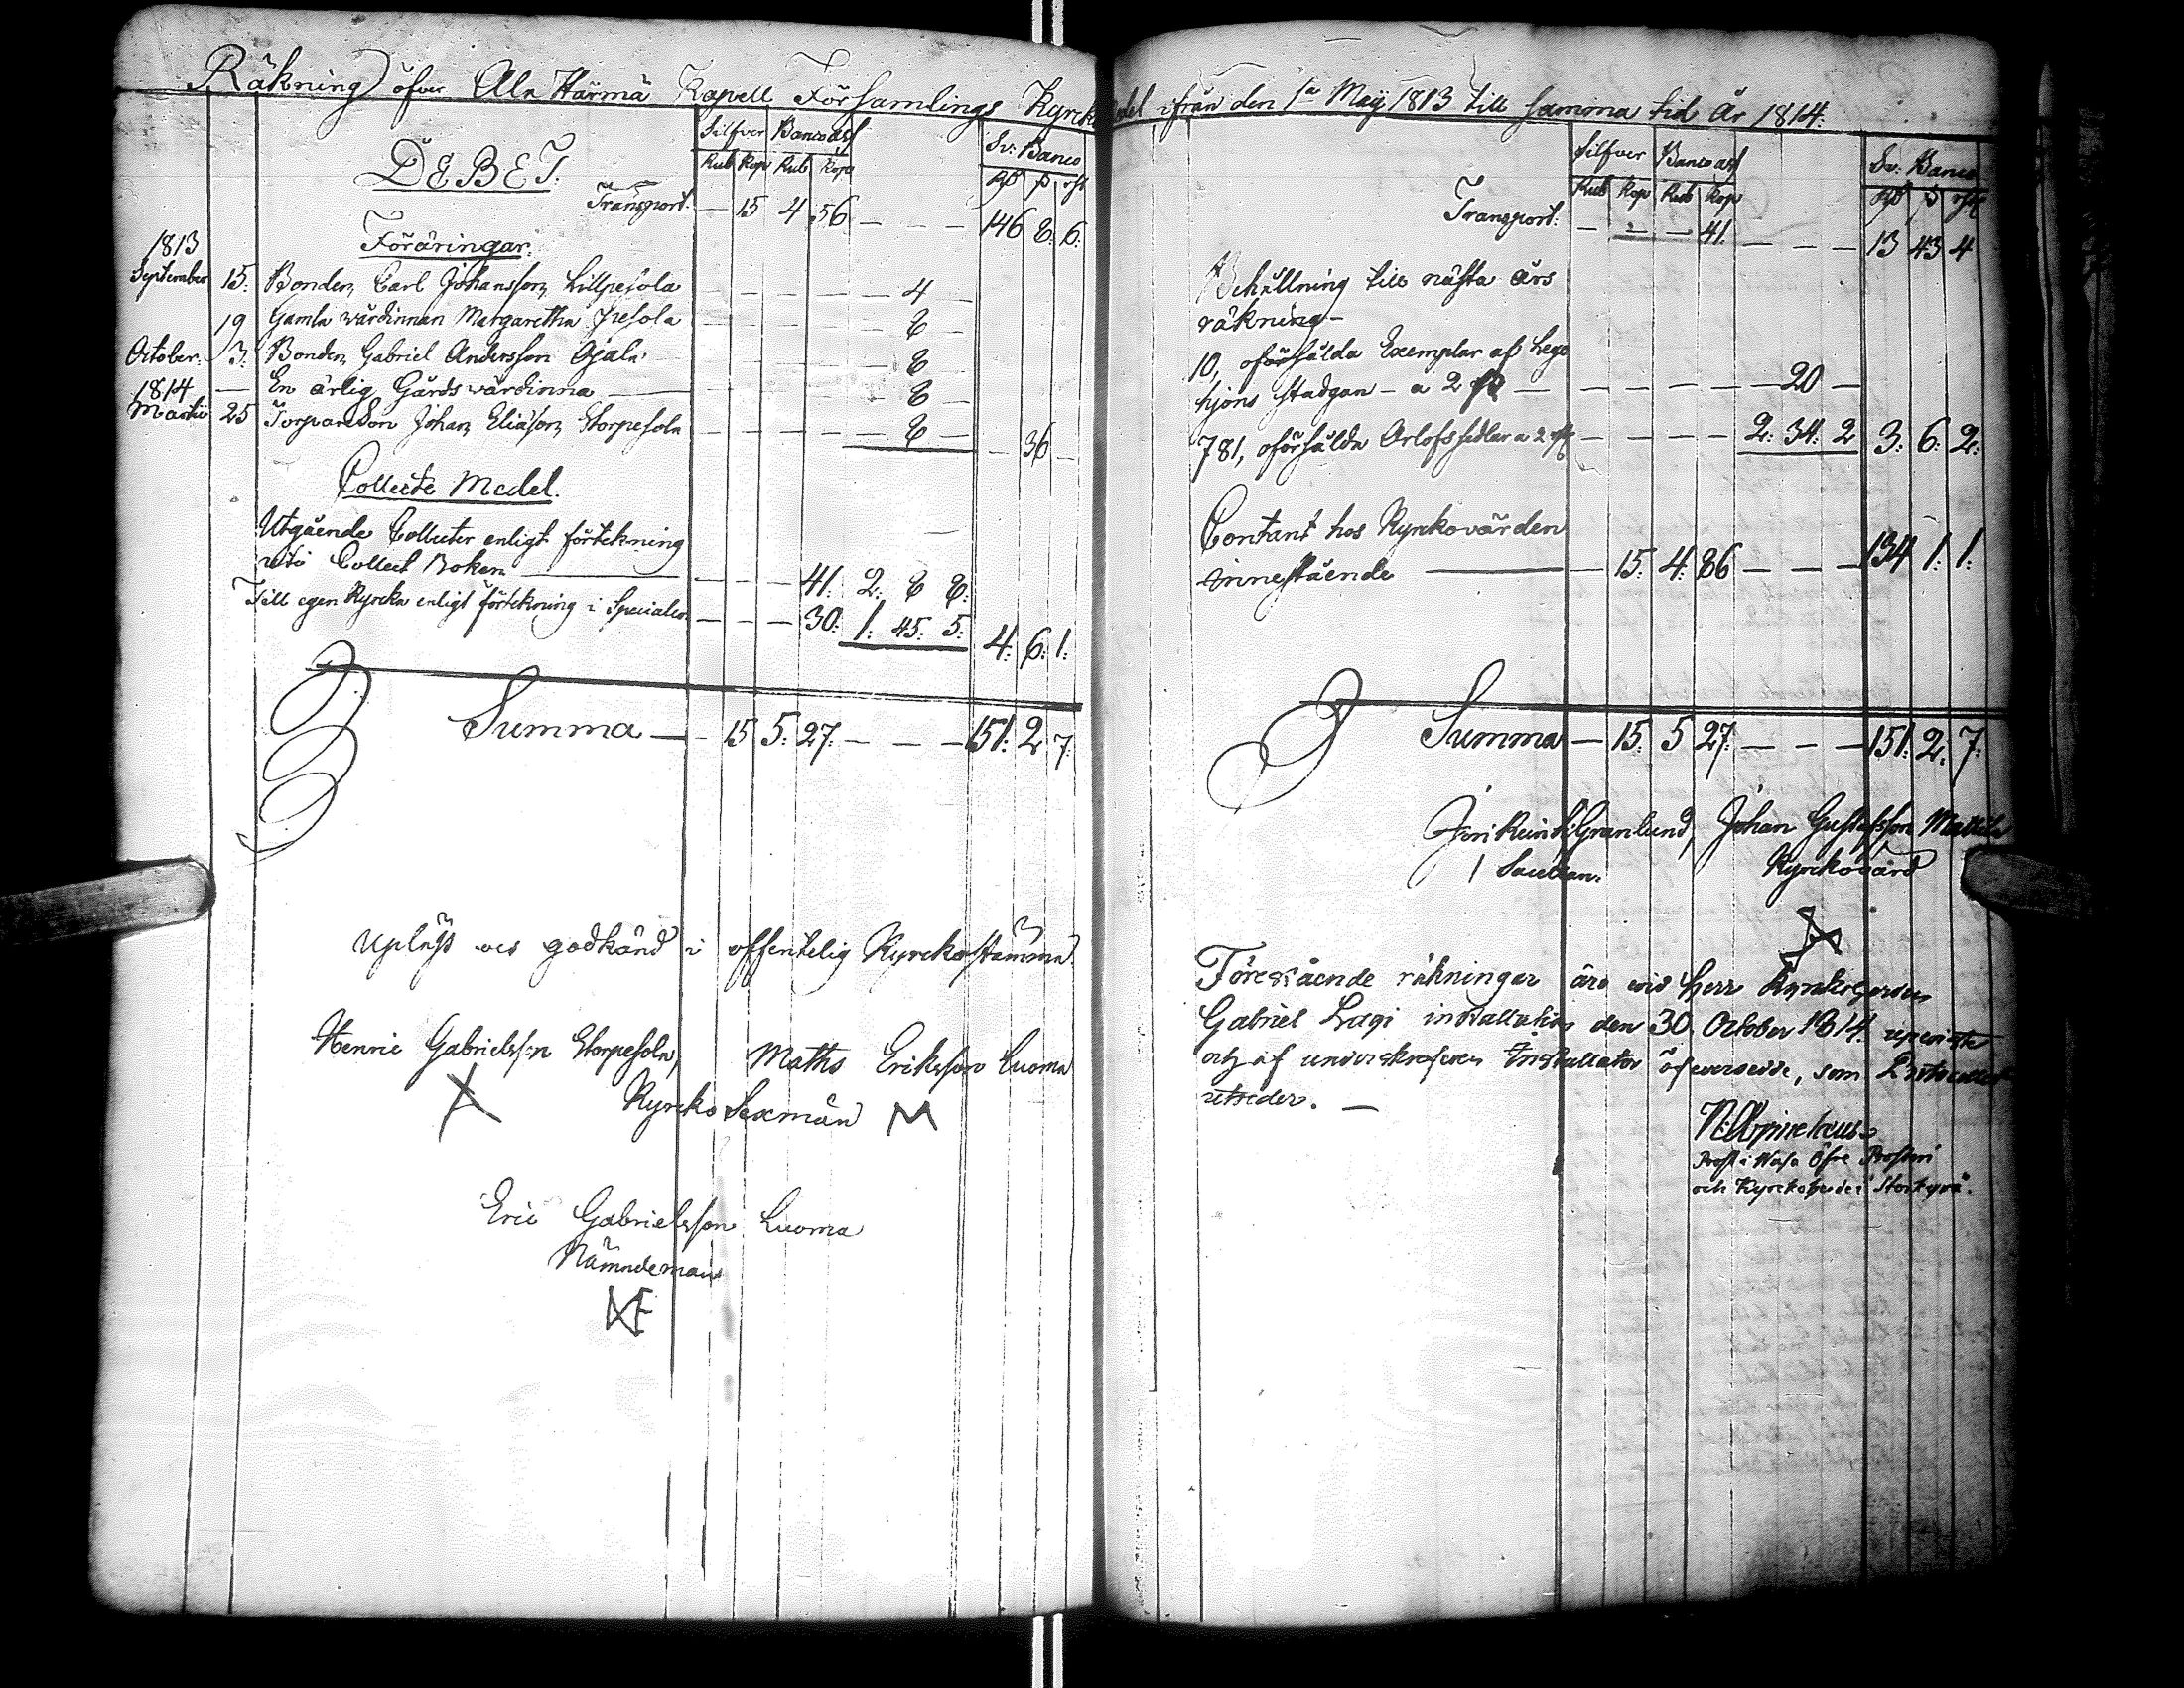 Räkning öfver Ala Härmä Kapell Församlings Kyrck
DEBET.
Silfver Banco ass Sv: Banco
Rub Kop Rub Kop Rd ß rst
Transport: — 15 4 56 — — — 146 8. 6.
1813 Föräringar.
September 15. Bonden Carl Johansson Lillpesola — — — — — 4 —
19 Gamla wärdinnan Margaretha Pesola — — — — — 8 —
October. 3. Bonden Gabriel Andersson Ojala — — — — — 8 —
1814 — En ärlig Gårds wärdinna — — — — — 8 —
Martii 25 Torparson Johan Eliäson Storpesola — — — — — 8 — — 36 —
Collecte Medel.
Utgående Collecter enligt förtekning
uti Collect Boken — — — — 41: 2: 8 8:
Till egen Kyrcka enligt förtekning i Specialen — — — 30: 1: 45: 5: 4: 6: 1:
Summa — — 15 5: 27: — — — 151: 2 7:
Uplyst och godkänd i offentelig Kyrckostämma.
Henric Gabrielsson Storpesola, Maths Eriksson Luoma
Kyrcko Sexmän M
Eric Gabrielsson Luoma
Nämndeman
del ifrån den 1a Maij 1813 till samma tid År 1814.
Silfver Banco ass Sv: Banco
Rub Kop Rub Kop Rd ß rst
Transport: — — — 41. — — — 13 43 4
Behållning till nästa års
räkning —
10, oförsålda Exemplar af Lego
hjons stadgan — a 2 ß — — — — — — 20 —
781, oförsålda Orlofssedlar a 2 rst — — — — 2: 34: 2 3: 6: 2:
Contant hos Kyrkovärden
innestående — — 15: 4: 86 — — — 134 1: 1:
Summa — 15: 5 27: — — — 151: 2: 7:
Granlund, Johan Gustafsson Mattila
Sacellan. Kyrckovärd
Förestående räkningar äro vid Herr Kyrkoherden
Gabriel Lagi installation den 30 October 1814 upviste
och af underskrefven Installator öfversedde, som
utvider. —
Prost i Wasa Öfre Prosteri
och Kyrckoherde i Storkyro.